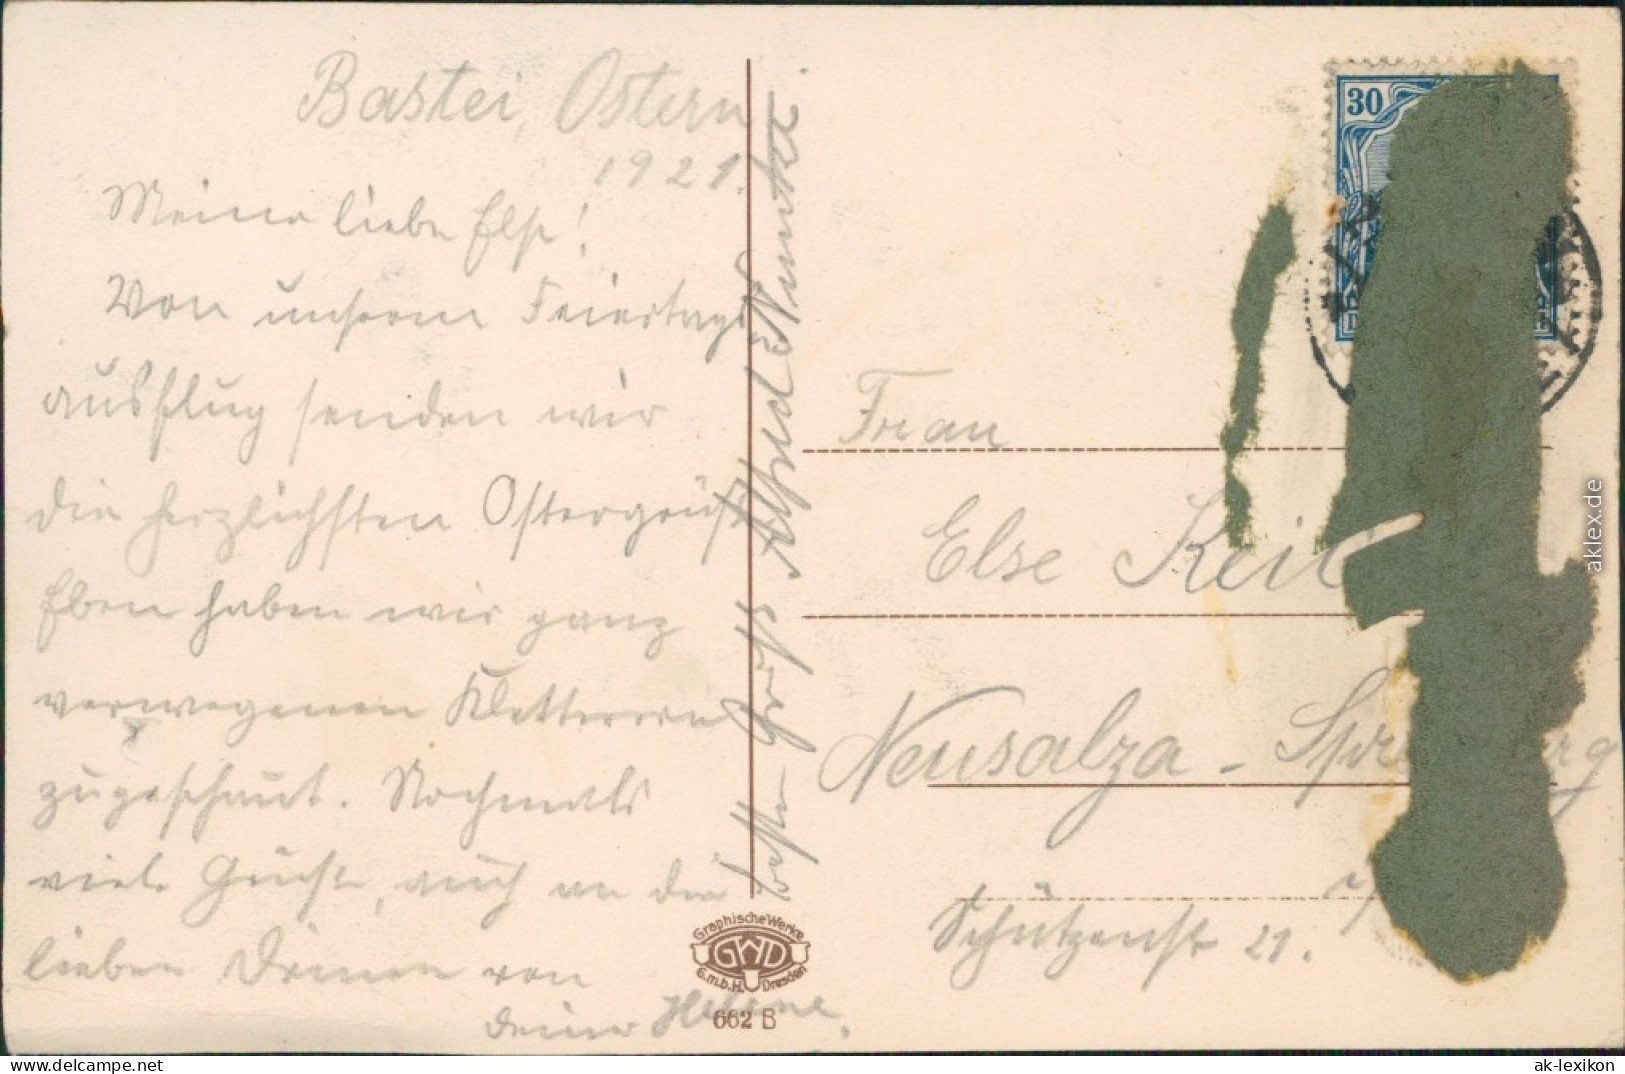 Bastei, Ostern
1921.
Meine liebe Else!
Von unserem Feiertags
ausflug senden wir
die herzlichsten Ostergrüße
Eben haben wir ganz
verwegenen Kletterern
zugeschaut. Nochmals
viele Grüße, auch an die
lieben Deinen von
Deiner Helene.
Besten Gruß Alfred
Graphische Werke
GWD
G.m.b.H. Dresden
662 B
30
Frau
Else Keil
Neusalza - Spr erg
Schützenstr 21.
aklex.de
www.delcampe.net
ak-lexikon